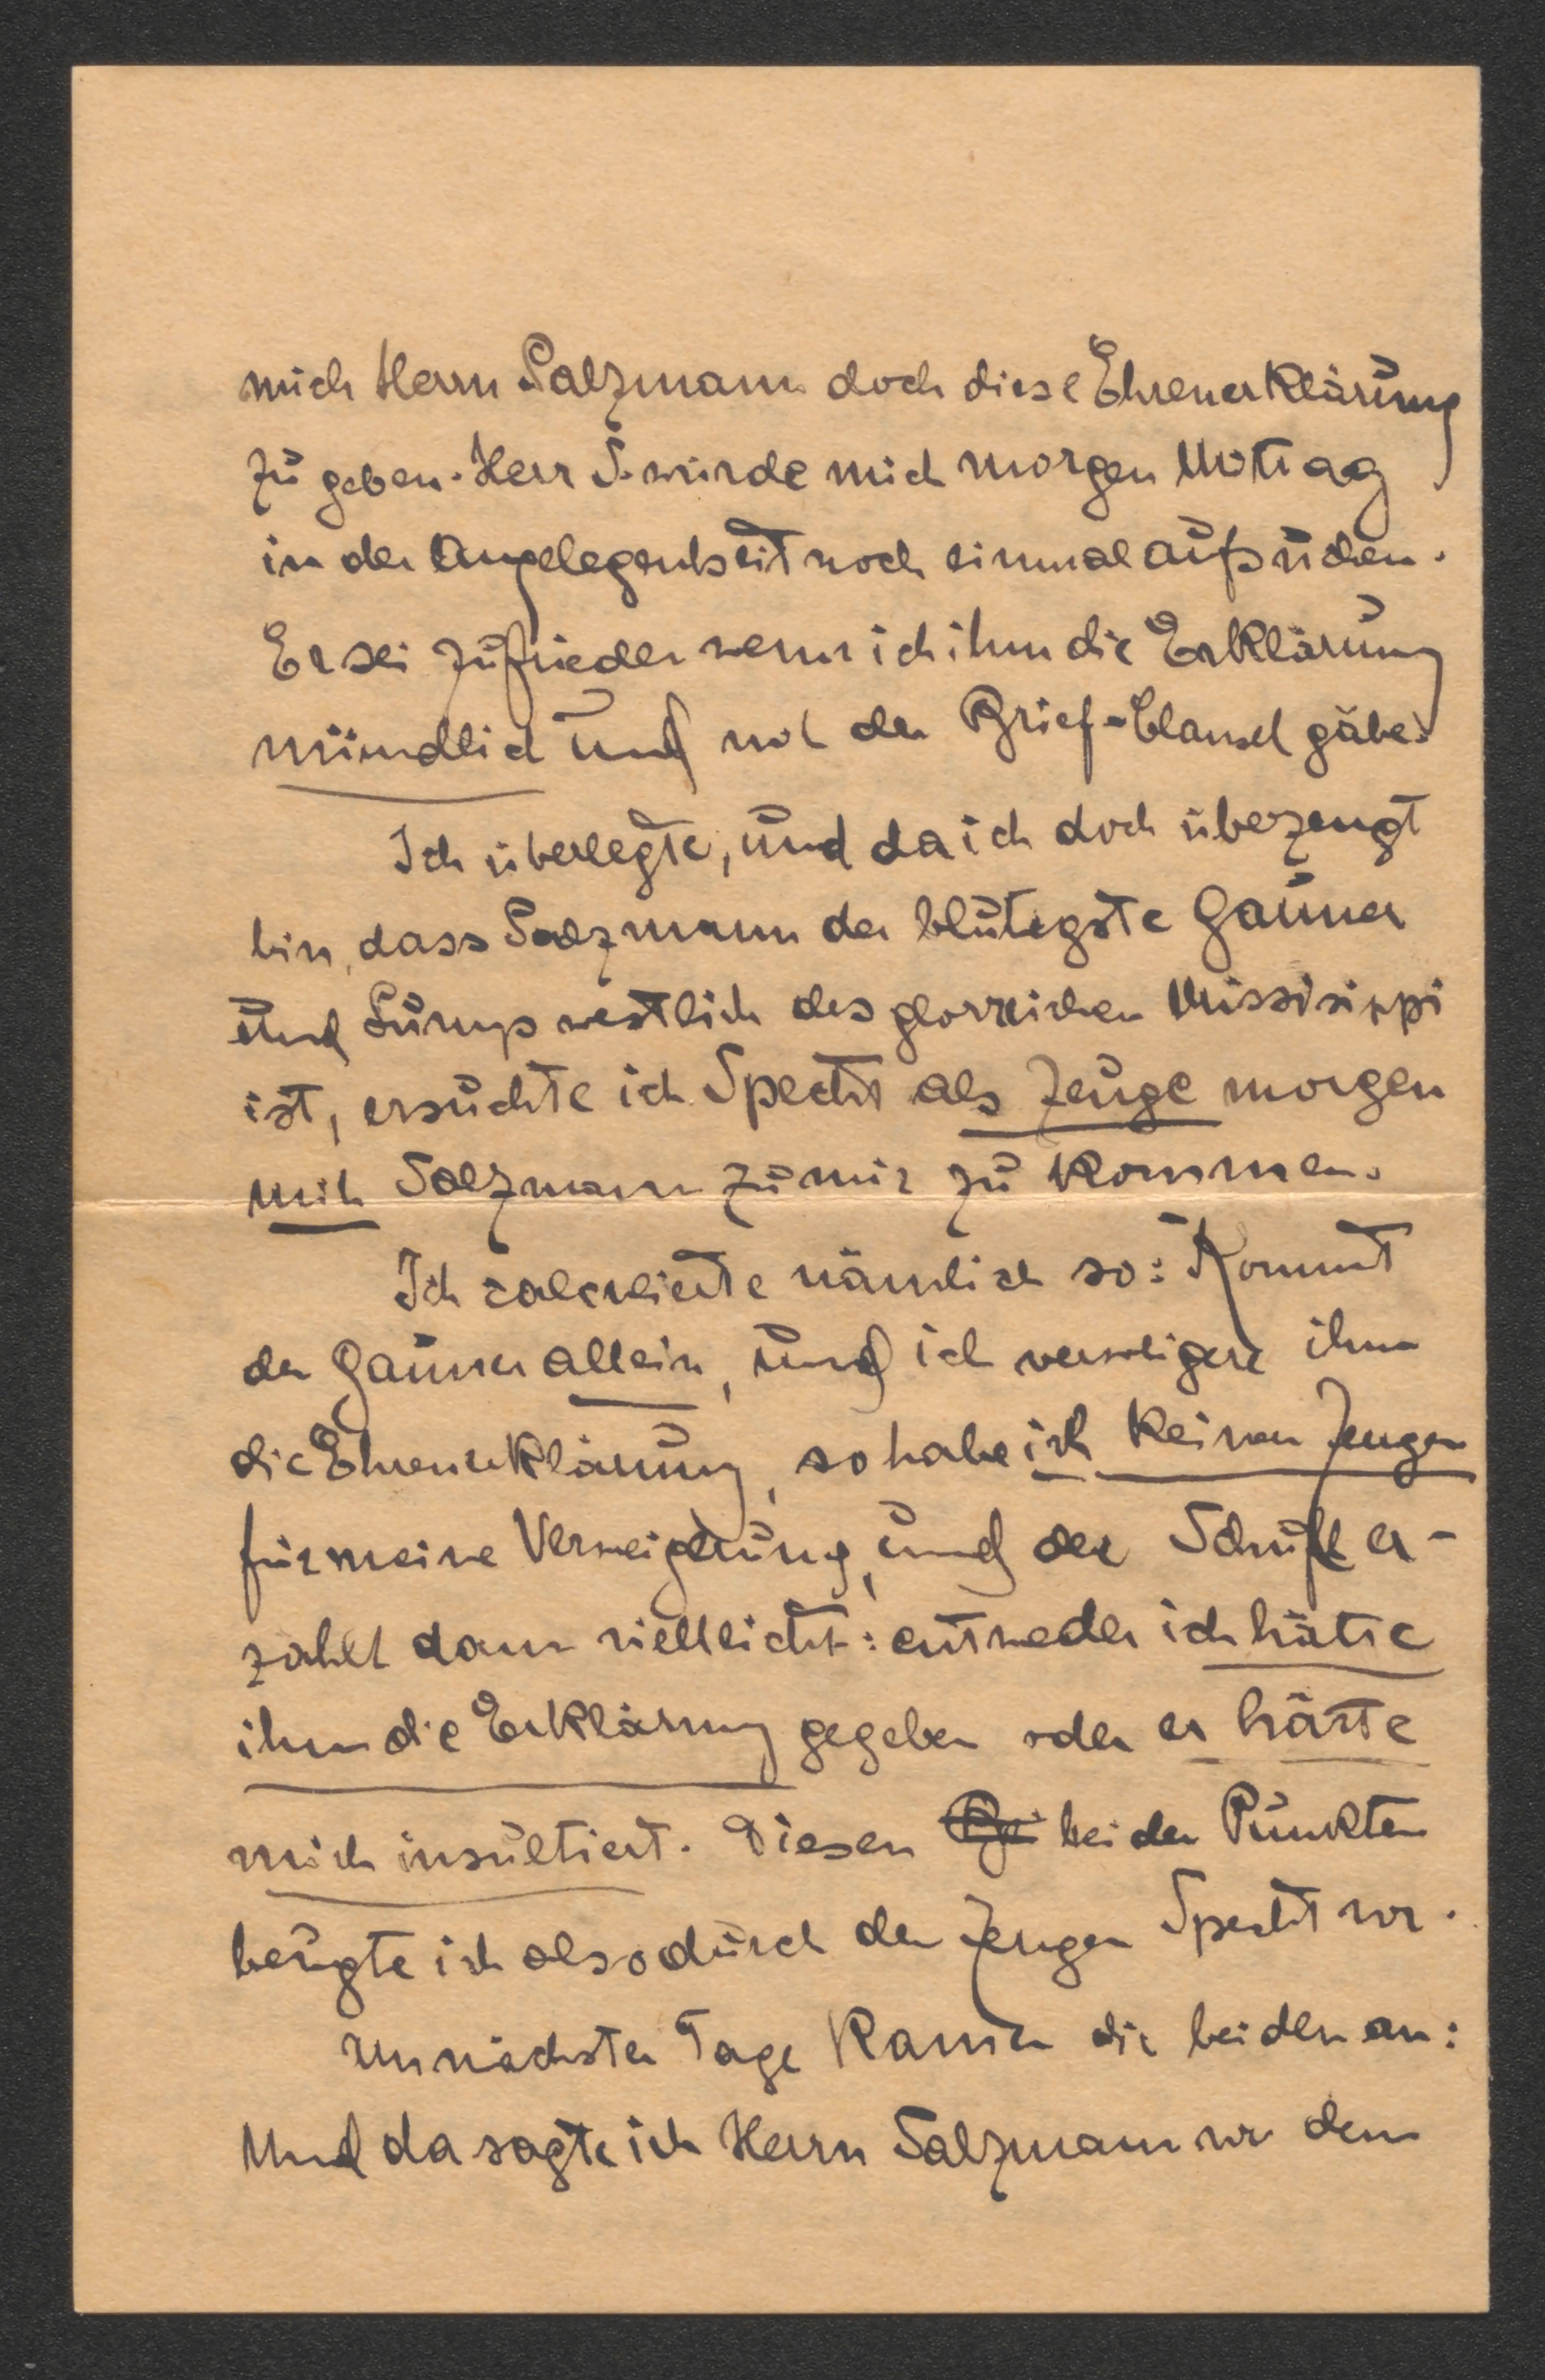 mich Herrn Salzmann doch diese Ehrenerklärung
zu geben. Herr S. würde mich morgen Mittag
in der Angelegenheit noch einmal aufsuchen.
Er sei zufrieden wenn ich ihm die Erklärung
mündlich und mit der Brief-Clausel gäbe.
Ich überlegte, und da ich doch überzeugt
bin, dass Salzmann der blutigste Gauner
und Lump westlich des glorreichen Missisippi
ist, ersuchte ich Specht als Zeuge morgen
mit Salzmann zu mir zu kommen.
Ich calculierte nämlich so: Kommt
der Gauner allein, und ich verweigere ihm
die Ehrenerklärung, so habe ich keinen Zeugen
für meine Verweigerung, und der Schuft er-
zählt dann vielleicht: entweder ich hätte
ihm die Erklärung gegeben oder er hätte
mich insultiert. Diesen beiden Punkten
beugte ich also durch den Zeugen Specht vor.
Am nächsten Tage kamen die beiden an:
Und da sagte ich Herrn Salzmann vor dem